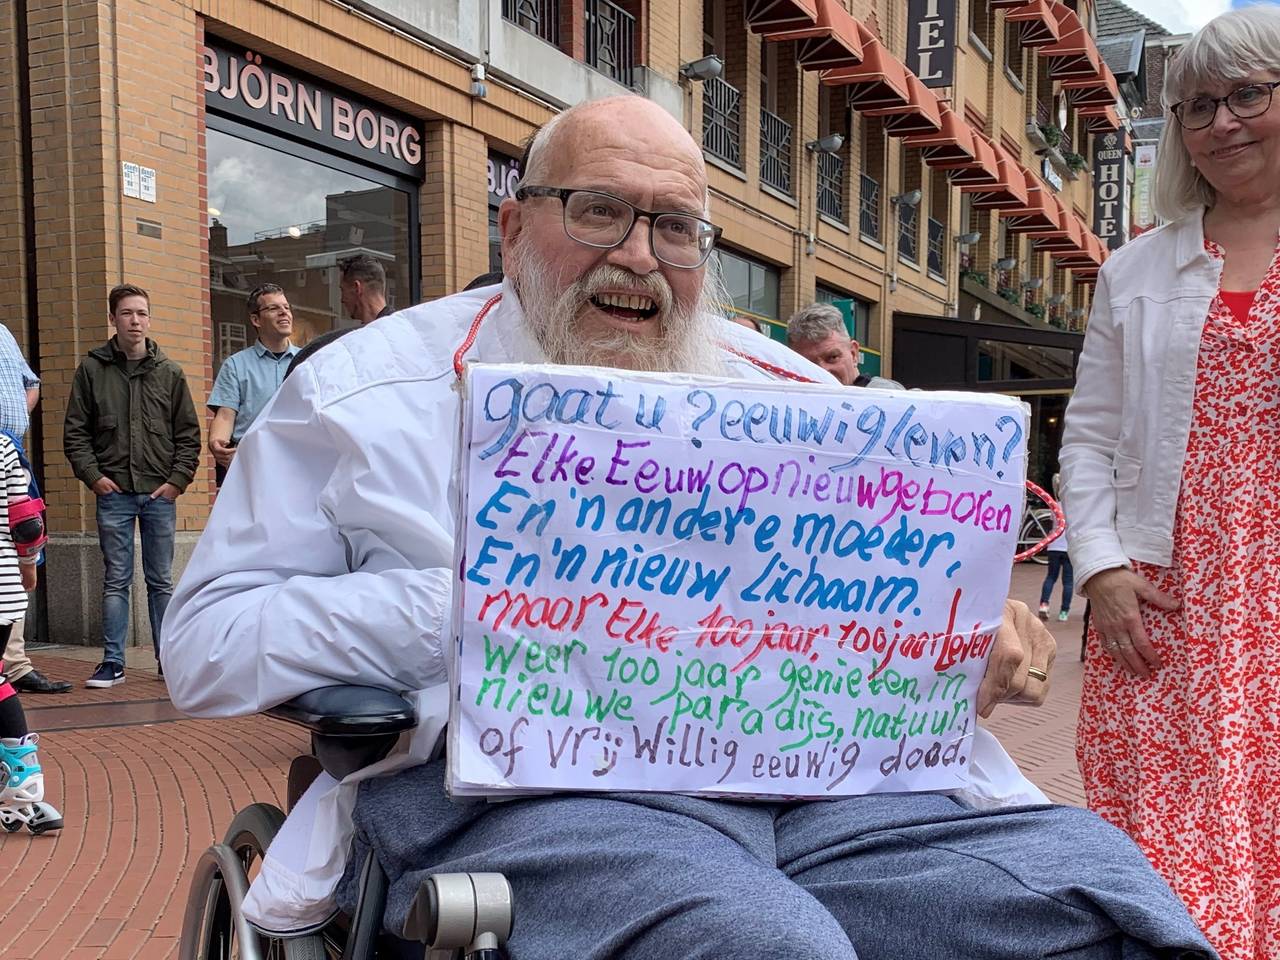 BJÖRN BORG
BJÖ
TEL
QUEEN
HOTE
gaat u ? eeuwig leven?
Elke Eeuw opnieuw geboren
En 'n andere moeder,
En 'n nieuw Lichaam.
maar Elke 100 jaar, 100 jaar Leven!
weer 100 jaar genieten, in
nieuwe paradijs, natuur!
of vrijwillig eeuwig dood!